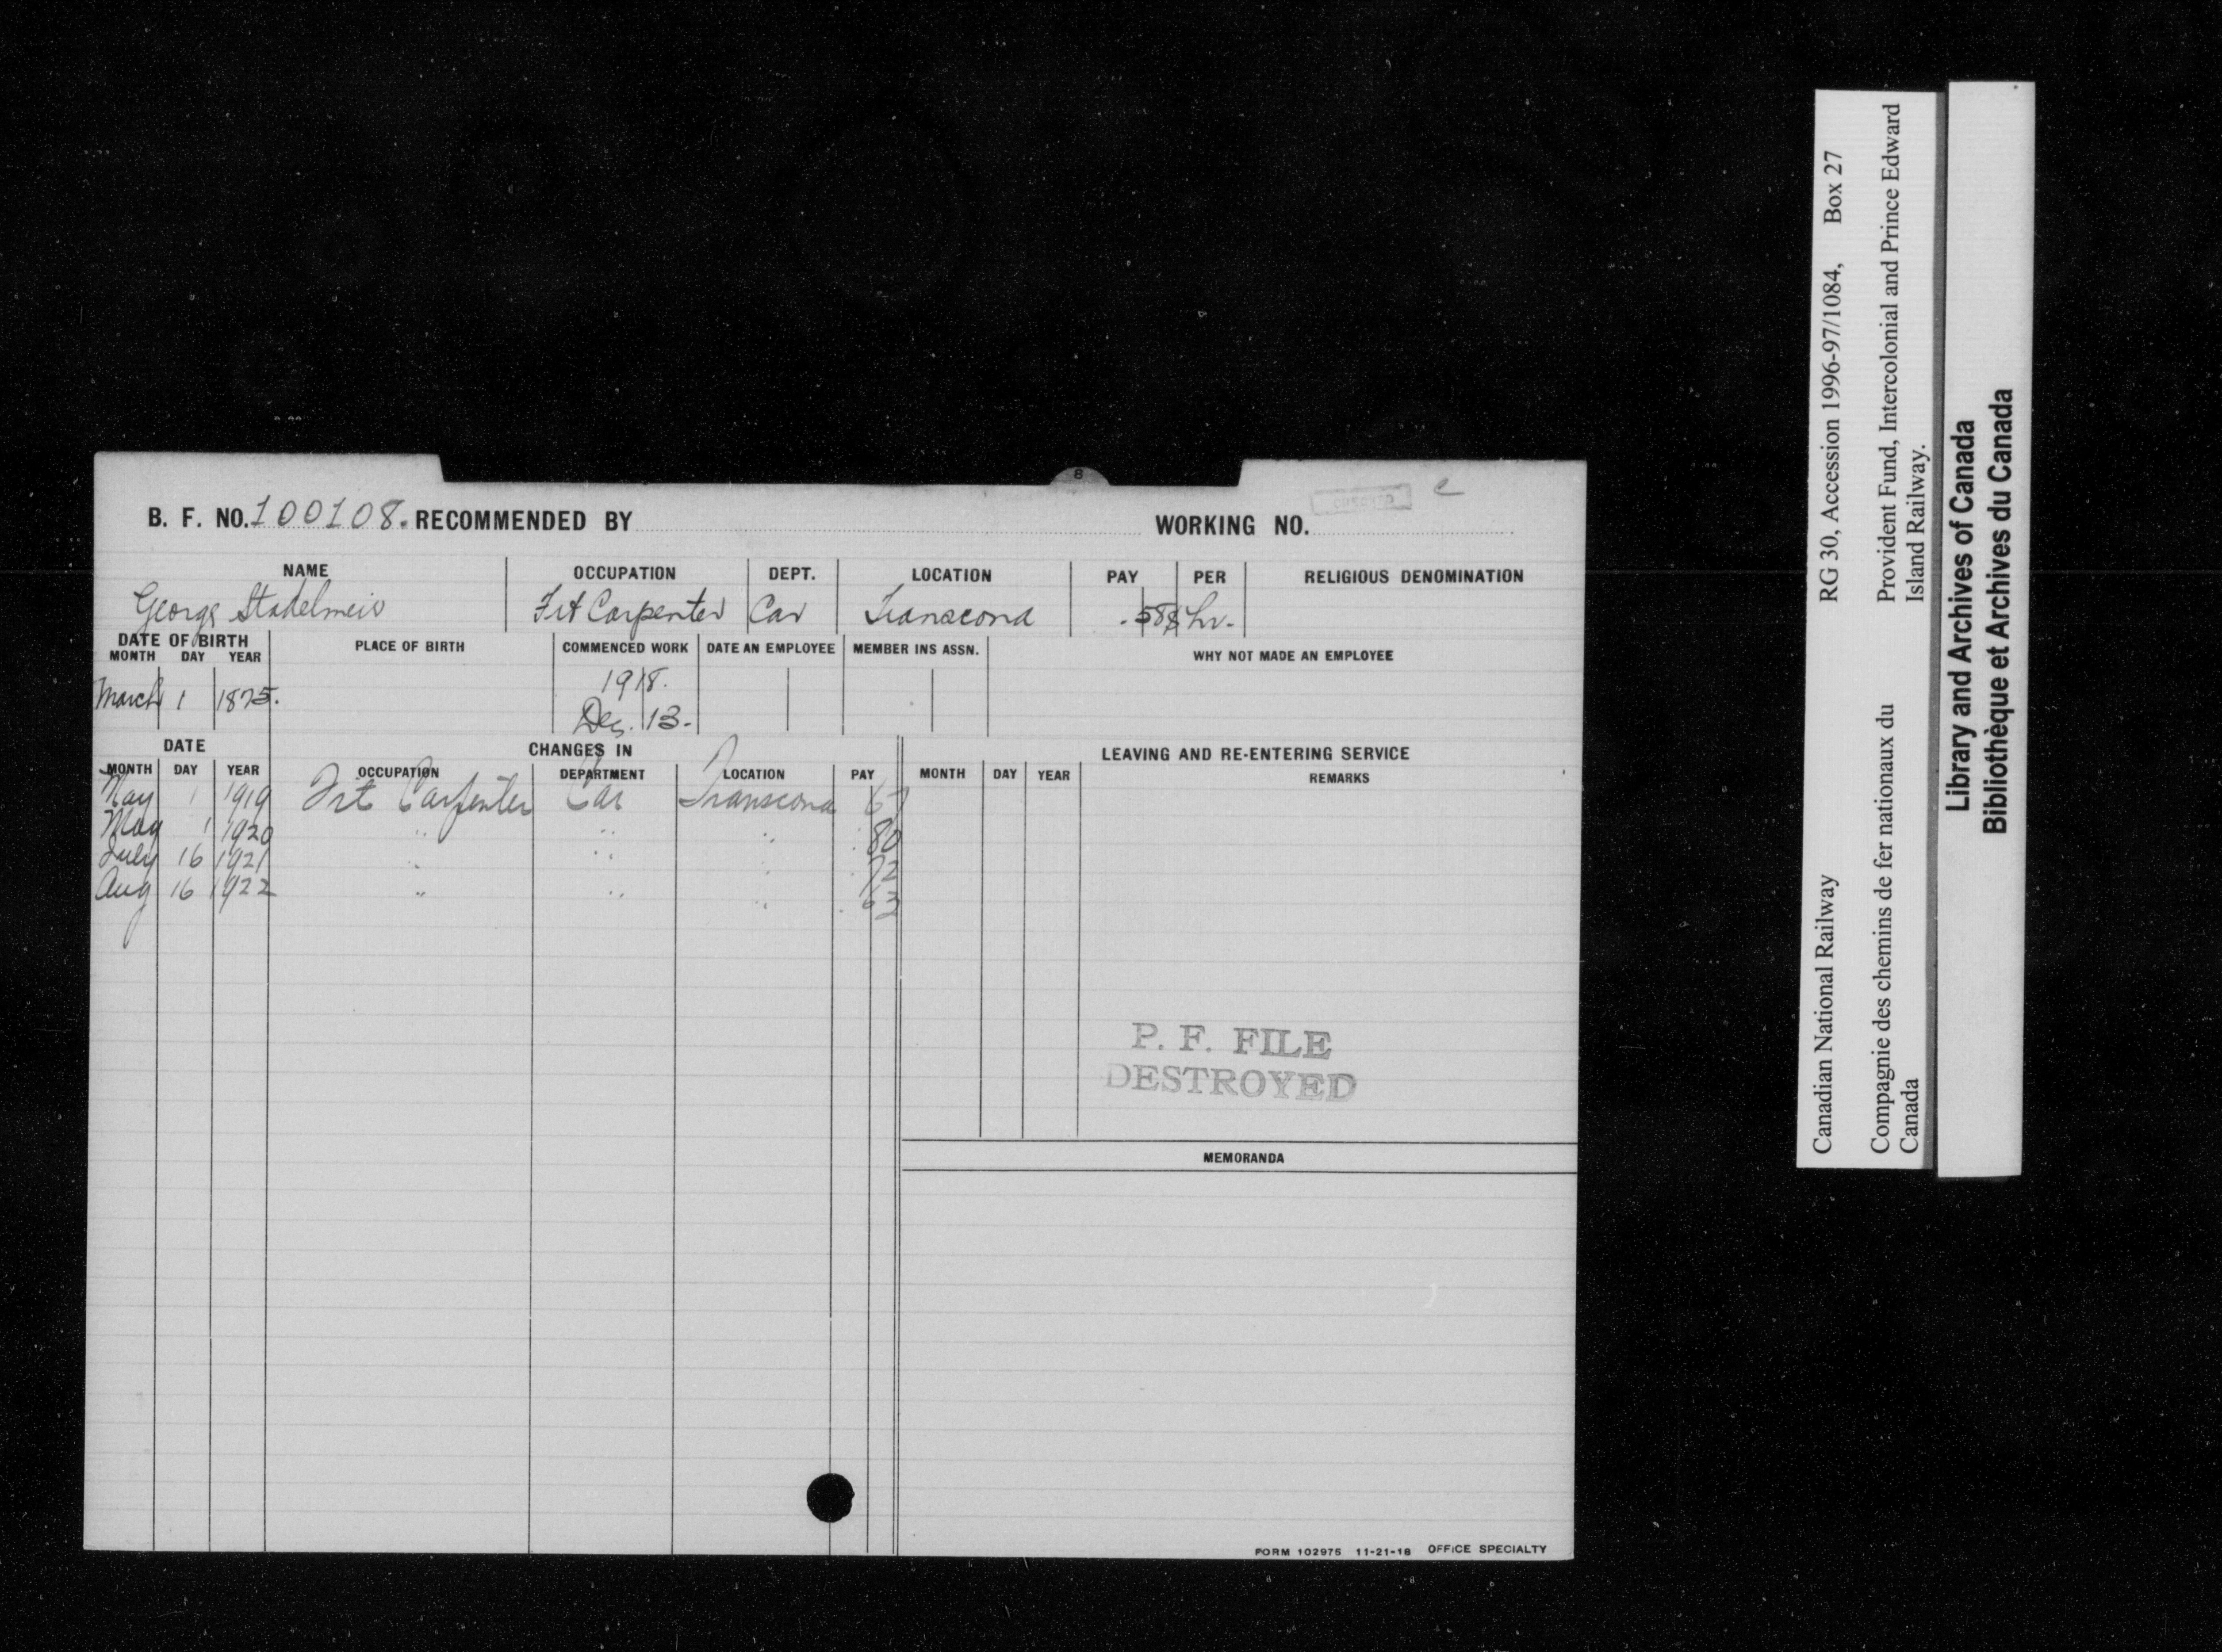 8
CHECKED c
B. F. NO. 100108. RECOMMENDED BY WORKING NO.
NAME OCCUPATION DEPT. LOCATION PAY PER RELIGIOUS DENOMINATION
George Stadelmeir Frt Carpenter Car Transcona .58¢ hr.
DATE OF BIRTH PLACE OF BIRTH COMMENCED WORK DATE AN EMPLOYEE MEMBER INS ASSN. WHY NOT MADE AN EMPLOYEE
MONTH DAY YEAR
March 1 1875. 1918.
Dec. 13.
DATE CHANGES IN LEAVING AND RE-ENTERING SERVICE
MONTH DAY YEAR OCCUPATION DEPARTMENT LOCATION PAY MONTH DAY YEAR REMARKS
May 1 1919 Frt Carpenter Car Transcona 67
May 1 1920 " " " .80
July 16 1921 " " " .72
Aug 16 1922 " " " .63
P. F. FILE
DESTROYED
MEMORANDA
FORM 102975 11-21-18 OFFICE SPECIALTY
Canadian National Railway RG 30, Accession 1996-97/1084, Box 27
Compagnie des chemins de fer nationaux du Provident Fund, Intercolonial and Prince Edward
Canada Island Railway.
Library and Archives of Canada
Bibliothèque et Archives du Canada